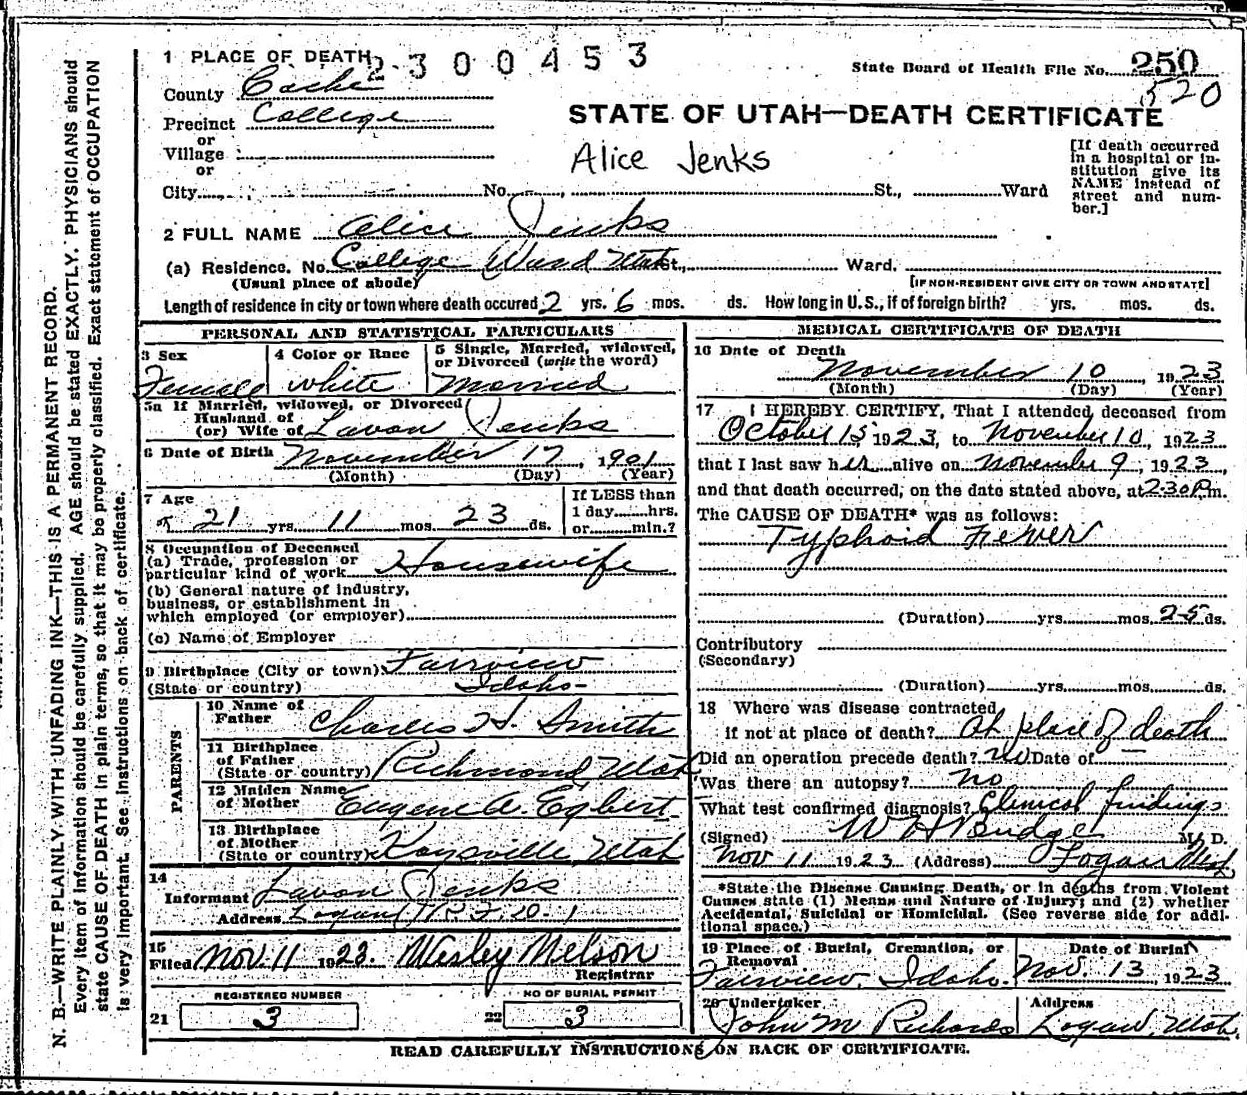 1 PLACE OF DEATH
2300453
State Board of Health File No. 250
520
County Cache
Precinct College
or
Village
or
STATE OF UTAH—DEATH CERTIFICATE
Alice Jenks
[If death occurred in a hospital or institution give its NAME instead of street and number.]
City No. St., Ward
2 FULL NAME Alice Jenks
(a) Residence. No. College Ward Utah St., Ward.
(Usual place of abode) [IF NON-RESIDENT GIVE CITY OR TOWN AND STATE]
Length of residence in city or town where death occured 2 yrs. 6 mos. ds. How long in U.S., if of foreign birth? yrs. mos. ds.
PERSONAL AND STATISTICAL PARTICULARS
3 Sex Female
4 Color or Race white
5 Single, Married, widowed, or Divorced (write the word) Married
5a If Married, widowed, or Divorced
Husband of
(or) Wife of Lavon Jenks
6 Date of Birth November 17, 1901
(Month) (Day) (Year)
7 Age 21 yrs. 11 mos. 23 ds.
If LESS than
1 day hrs.
or min.?
8 Occupation of Deceased
(a) Trade, profession or
particular kind of work Housewife
(b) General nature of industry,
business, or establishment in
which employed (or employer)
(c) Name of Employer
9 Birthplace (City or town) Fairview
(State or country) Idaho
PARENTS
10 Name of
Father Charles H. Smith
11 Birthplace
of Father
(State or country) Richmond Utah
12 Maiden Name
of Mother Eugene A. Egbert
13 Birthplace
of Mother
(State or country) Kaysville Utah
14
Informant Lavon Jenks
Address Logan R.F.D. 1
15
Filed Nov. 11 1923. Wesley Nelson
Registrar
REGISTERED NUMBER
21 3
NO OF BURIAL PERMIT
22 3
MEDICAL CERTIFICATE OF DEATH
16 Date of Death
November 10, 1923
(Month) (Day) (Year)
17 I HEREBY CERTIFY, That I attended deceased from
October 15 1923, to November 10, 1923
that I last saw her alive on November 9, 1923,
and that death occurred, on the date stated above, at 2:30 P.m.
The CAUSE OF DEATH* was as follows:
Typhoid Fever
(Duration) yrs. mos. 25 ds.
Contributory
(Secondary)
(Duration) yrs. mos. ds.
18 Where was disease contracted
if not at place of death? At place of death
Did an operation precede death? No Date of —
Was there an autopsy? no
What test confirmed diagnosis? Clinical findings
(Signed) W H Budge M. D.
Nov 11 1923 (Address) Logan Utah
*State the Disease Causing Death, or in deaths from Violent
Causes state (1) Means and Nature of Injury; and (2) whether
Accidental, Suicidal or Homicidal. (See reverse side for additional space.)
19 Place of Burial, Cremation, or
Removal
Fairview, Idaho.
Date of Burial
Nov. 13, 1923
20 Undertaker
John M Richards
Address
Logan, Utah.
READ CAREFULLY INSTRUCTIONS ON BACK OF CERTIFICATE.
N. B.—WRITE PLAINLY WITH UNFADING INK—THIS IS A PERMANENT RECORD.
Every item of information should be carefully supplied. AGE should be stated EXACTLY. PHYSICIANS should
state CAUSE OF DEATH in plain terms, so that it may be properly classified. Exact statement of OCCUPATION
is very important. See instructions on back of certificate.